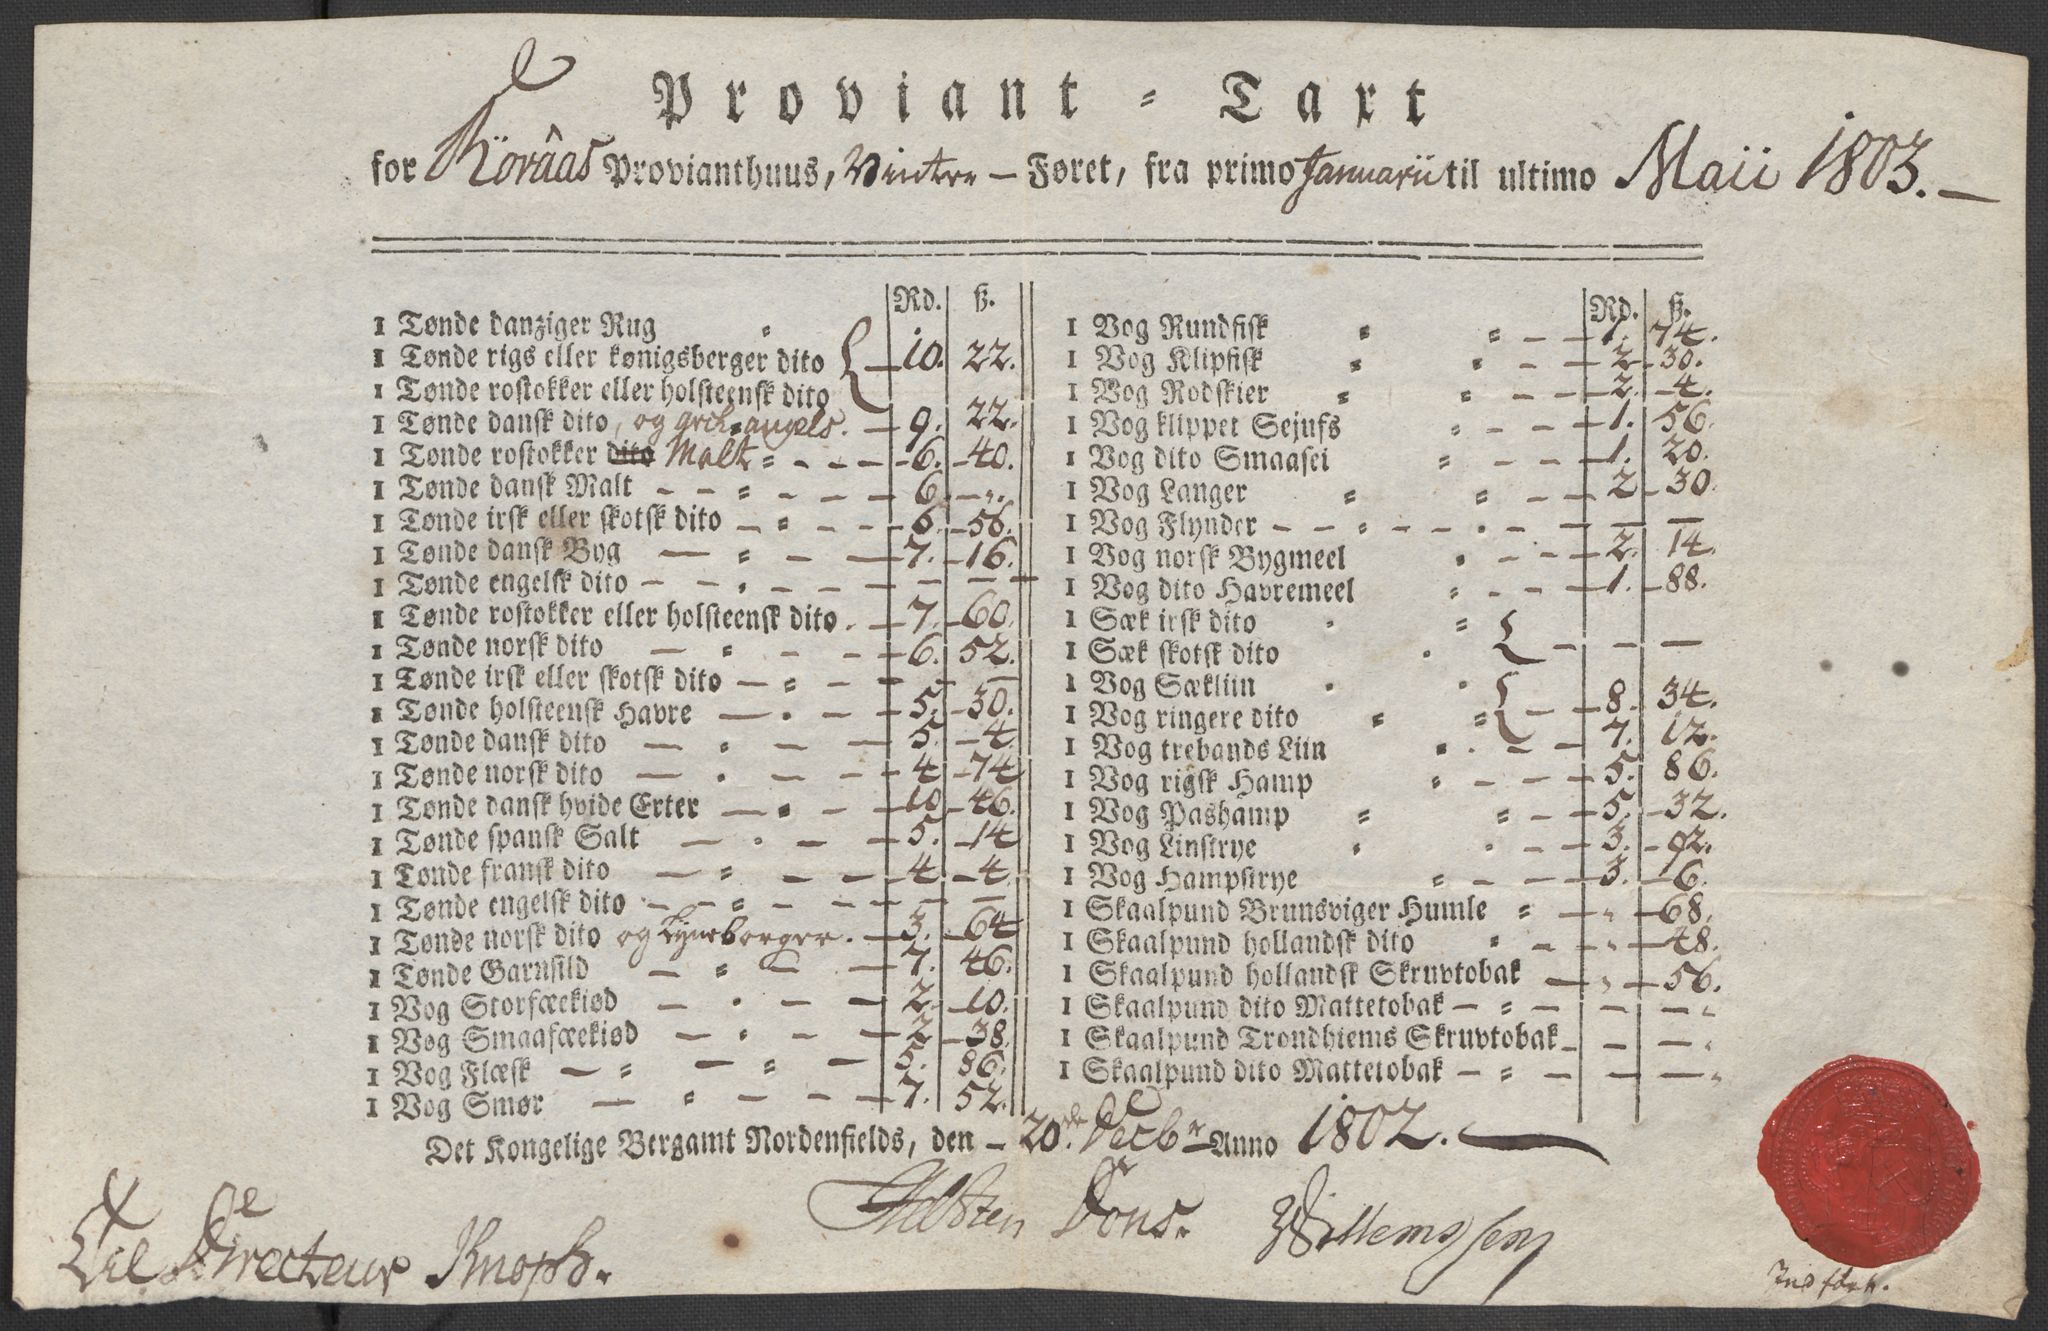 Proviant - Taxt
for Röraas Provianthuus, Vinter - Føret, fra primo Januarii til ultimo Maii 1803.
Rd. ß.
1 Tønde danziger Rug
1 Tønde rigs eller kønigsberger dito 10. 22.
1 Tønde rostokker eller holsteensk dito
1 Tønde dansk dito, og Archangels. 9. 22.
1 Tønde rostokker dito Malt 6. 40.
1 Tønde dansk Malt 6. „
1 Tønde irsk eller skotsk dito 6. 56.
1 Tønde dansk Byg 7. 16.
1 Tønde engelsk dito — —
1 Tønde rostokker eller holsteensk dito 7. 60.
1 Tønde norsk dito 6. 52.
1 Tønde irsk eller skotsk dito — —
1 Tønde holsteensk Havre 5. 30.
1 Tønde dansk dito 5. 4.
1 Tønde norsk dito 4 74
1 Tønde dansk hvide Erter 10 46.
1 Tønde spansk Salt 5. 14
1 Tønde fransk dito 4 4.
1 Tønde engelsk dito — —
1 Tønde norsk dito og Lyneborger. 3. 64
1 Tønde Garnsild 7. 46.
1 Vog Storfæekiød 2. 10.
1 Vog Smaafæekiød 2 38.
1 Vog Flæsk 5. 86.
1 Vog Smør 7. 52.
Rd. ß.
1 Vog Rundfisk 1. 74.
1 Vog Klipfisk 2 30.
1 Vog Rodskier 2. 4.
1 Vog klippet Sejufs 1. 56.
1 Vog dito Smaasei 1. 20.
1 Vog Langer 2 30.
1 Vog Flynder — —
1 Vog norsk Bygmeel 2. 14.
1 Vog dito Havremeel 1. 88.
1 Sæk irsk dito
1 Sæk skotsk dito — —
1 Vog Sækliin
1 Vog ringere dito 8. 34.
1 Vog trebands Liin 7. 12.
1 Vog rigsk Hamp 5. 86.
1 Vog Pashamp 5. 32.
1 Vog Linstrye 3. 92.
1 Vog Hampstrye 3. 6.
1 Skaalpund Brunsviger Humle „ 68.
1 Skaalpund hollandsk dito „ 48.
1 Skaalpund hollandsk Skruvtobak „ 56.
1 Skaalpund dito Mattetobak — —
1 Skaalpund Trondhiems Skruvtobak — —
1 Skaalpund dito Mattetobak — —
Det Kongelige Bergamt Nordenfields, den 20de Decbr Anno 1802.
Dons. Willemssen
Til Directeur Knoph.